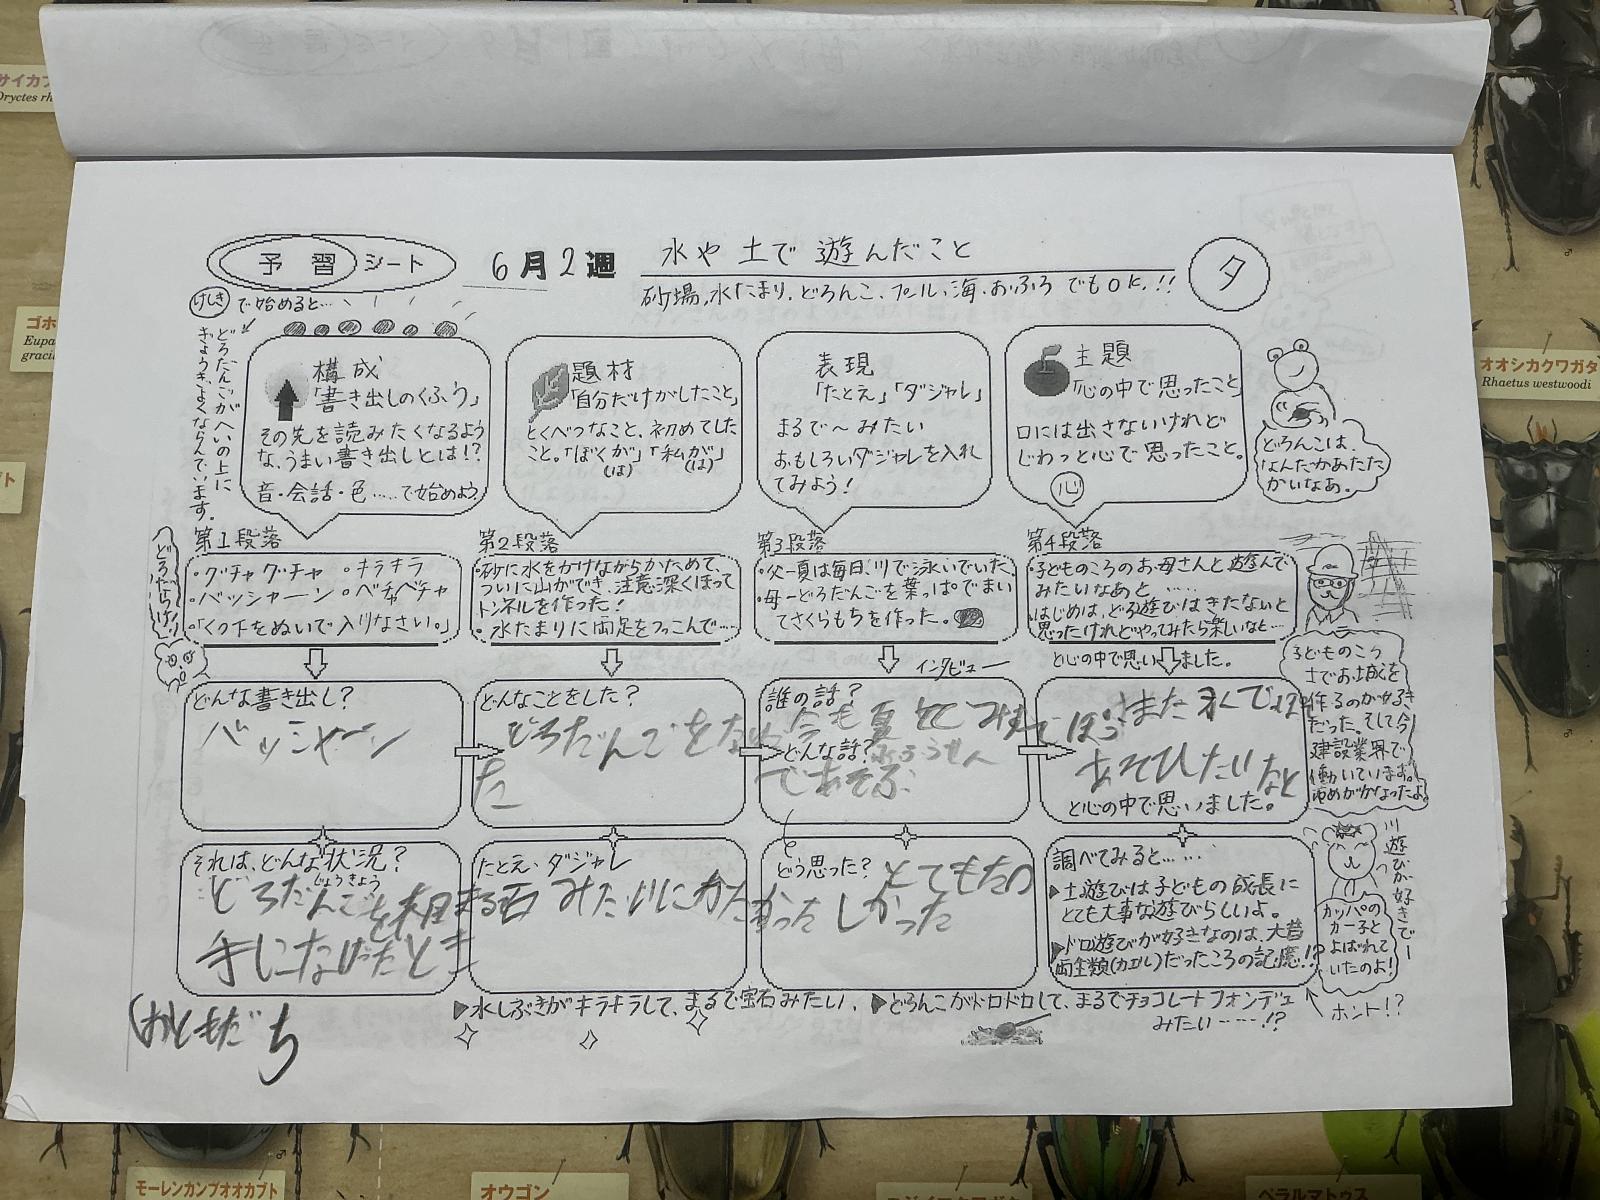 サイカブ
Oryctes rh
ゴホ
Eupa
graci
オオシカクワガタ
Rhaetus westwoodi
予習シート
6月2週
水や土で遊んだこと
砂場、水たまり、どろんこ、プール、海、おふろ でもOK.!!
タ
けしきで始めると…
どろだんごがへいの上に
ぎょうぎよくならんでいます。
構成
「書き出しのくふう」
その先を読みたくなるよう
な、うまい書き出しとは!?
音・会話・色……で始めよう。
題材
「自分だけがしたこと」
とくべつなこと、初めてした
こと。「ぼくが」「私が」
(は) (は)
表現
「たとえ」「ダジャレ」
まるで～みたい
おもしろいダジャレを入れ
てみよう!
主題
「心の中で思ったこと」
口には出さないけれど
じわっと心で思ったこと。
心
どろんこは、
なんだかあたた
かいなあ。
どろだらけ!!
第1段落
・グチャグチャ ・キラキラ
・バッシャーン ・ベチャベチャ
・「くつ下をぬいで入りなさい。」
第2段落
・砂に水をかけながらかためて、
ついに山ができ、注意深くほって
トンネルを作った!
・水たまりに両足をつっこんで…
第3段落
・父一夏は毎日、川で泳いでいた。
・母一どろだんごを葉っぱでまい
てさくらもちを作った。
第4段落
・子どものころのお母さんと遊んで
みたいなあと ……
はじめは、どろ遊びはきたないと
思ったけれどやってみたら楽しいなと…
と心の中で思いました。
インタビュー
子どものころ
土でお城を
作るのが好き
だった。そして今
建設業界で
働いています。
ゆめがかなったよ。
どんな書き出し?
バッシャーン
どんなことをした?
どろだんごをなげ
た
誰の話?
今も夏
どんな話?
であそぶ
また
あそびたいなと
と心の中で思いました。
それは、どんな状況?
じょうきょう
どろだんごを
手になげたとき
たとえ、ダジャレ
まる石みたいにかたかった
と
どう思った?
とてもたの
しかった
調べてみると……
▶土遊びは子どもの成長に
とても大事な遊びらしいよ。
▶ドロ遊びが好きなのは、大昔
両生類(カエル)だったころの記憶!?
川遊びが好きでー
カッパの
カー子と
よばれて
いたのよ!
ホント!?
おともだち
▶水しぶきがキラキラして、まるで宝石みたい、▶どろんこがドロドロして、まるでチョコレートフォンデュ
みたい……!?
モーレンカンプオオカブト
オウゴン
ベラルマトゥス